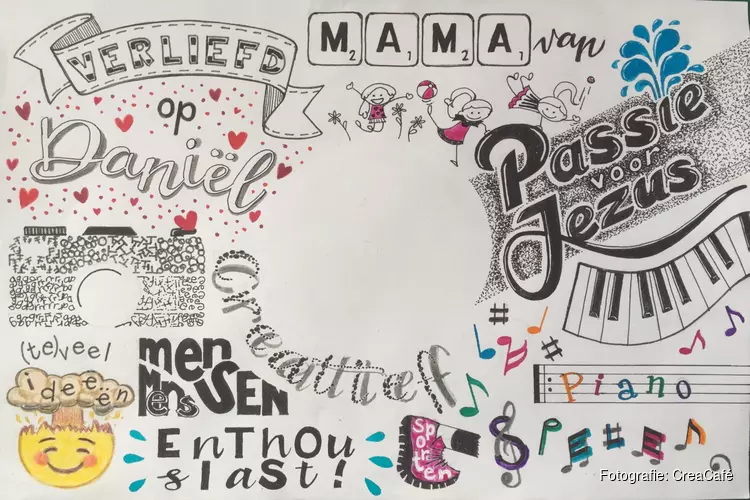 VERLIEFD
op
Daniël
MAMA van
Passie
voor
Jezus
Creatief
(te)veel
ideeën
mensen
Mens
Piano
EnTHOU
sIaST!
sporten
SPELEN
Fotografie: CreaCafé